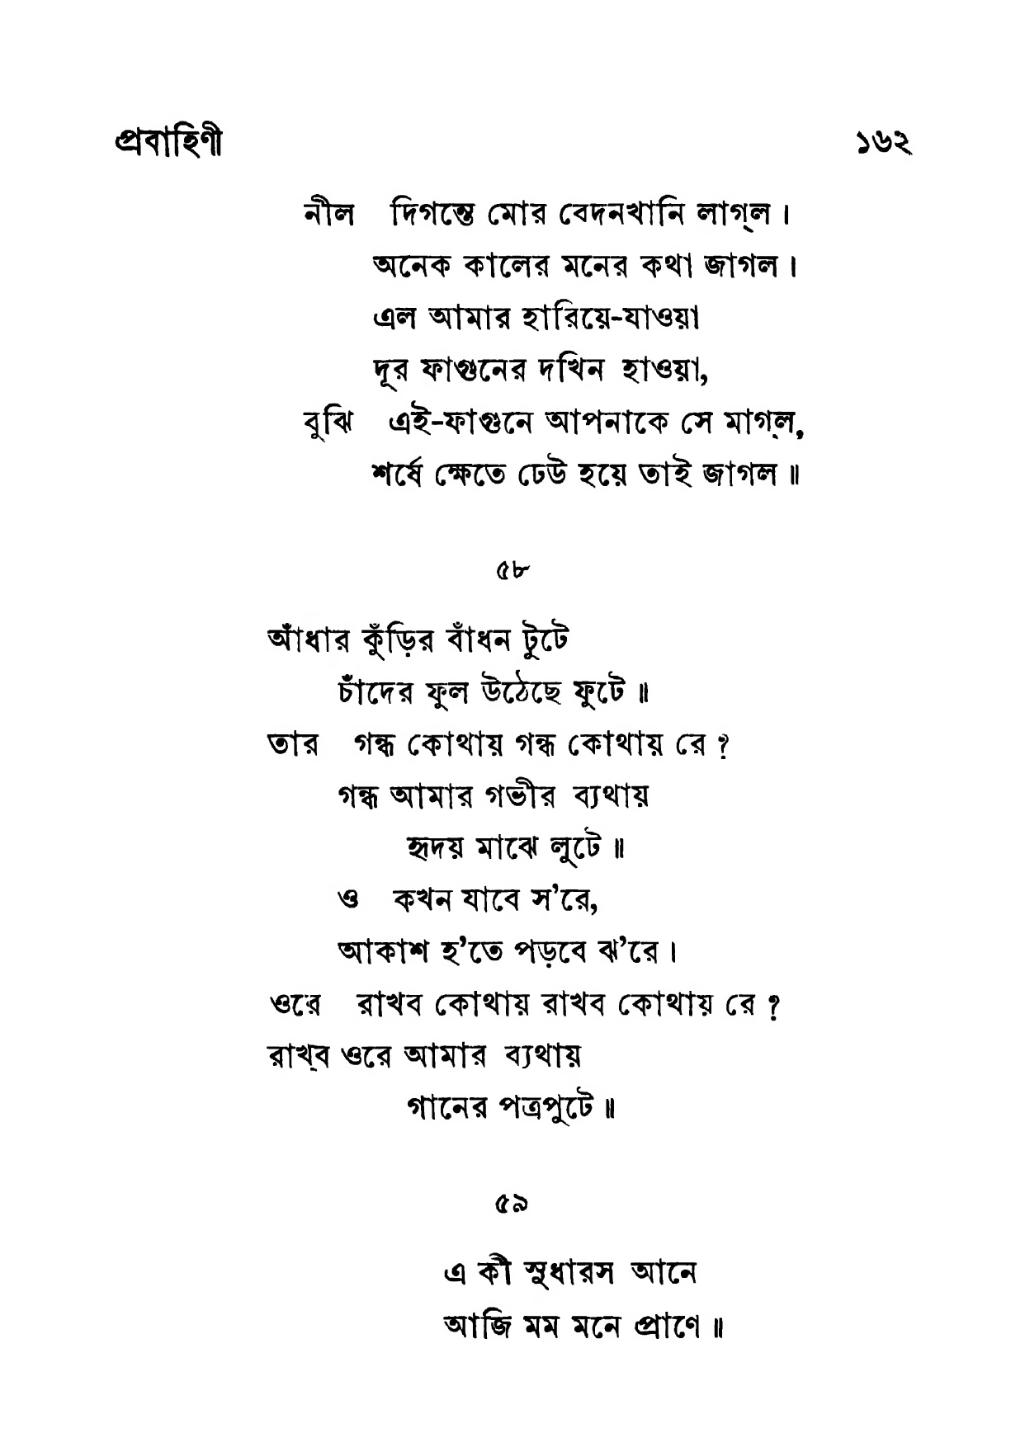 প্রবাহিণী ১৬২
নীল দিগন্তে মোর বেদনখানি লাগ্‌ল।
অনেক কালের মনের কথা জাগল।
এল আমার হারিয়ে-যাওয়া
দূর ফাগুনের দখিন হাওয়া,
বুঝি এই-ফাগুনে আপনাকে সে মাগ্‌ল,
শর্ষে ক্ষেতে ঢেউ হয়ে তাই জাগল॥
৫৮
আঁধার কুঁড়ির বাঁধন টুটে
চাঁদের ফুল উঠেছে ফুটে॥
তার গন্ধ কোথায় গন্ধ কোথায় রে?
গন্ধ আমার গভীর ব্যথায়
হৃদয় মাঝে লুটে॥
ও কখন যাবে স'রে,
আকাশ হ'তে পড়বে ঝ'রে।
ওরে রাখব কোথায় রাখব কোথায় রে?
রাখ্‌ব ওরে আমার ব্যথায়
গানের পত্রপুটে॥
৫৯
এ কী সুধারস আনে
আজি মম মনে প্রাণে॥